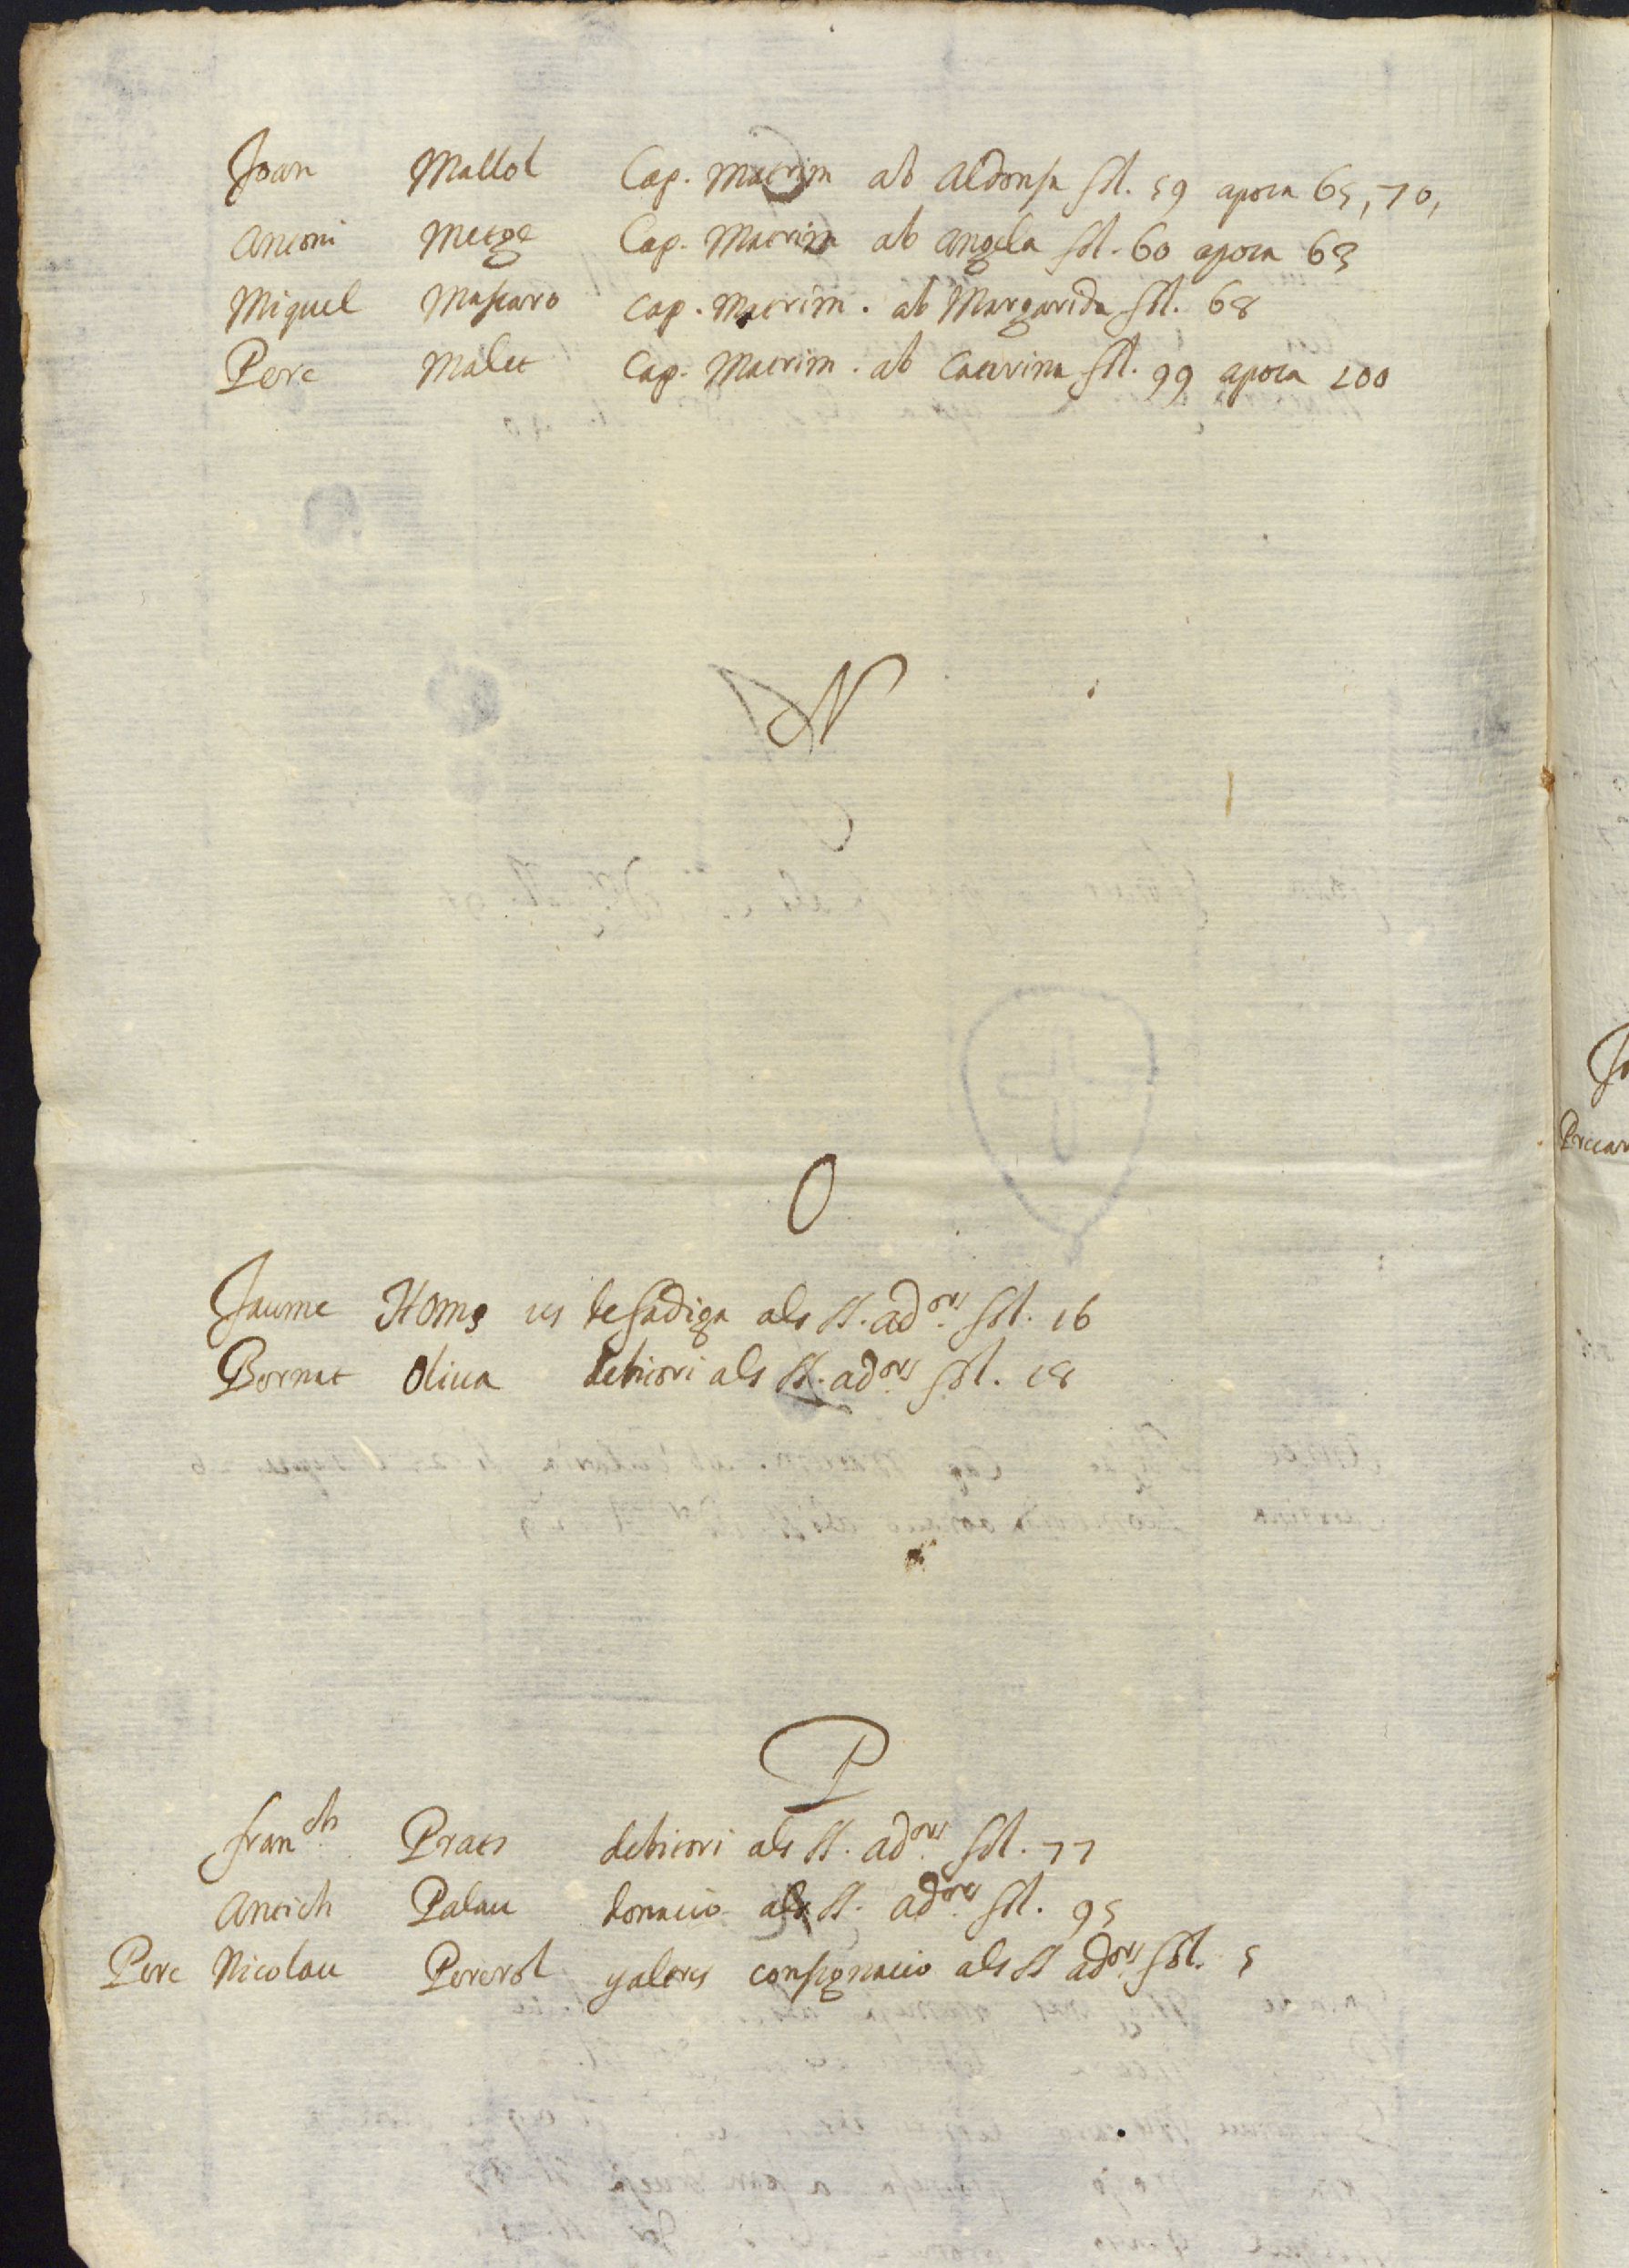 Joan Mallol Cap. Matrim ab Aldonsa fol. 59 apoca 65, 70,
Antoni Metge Cap. Matrim ab Angela fol. 60 apoca 63
Miquel Mascaro Cap. Matrim. ab Margarida fol. 68
Pere Malet Cap. Matrim. ab Caterina fol. 99 apoca 100
N
O
Jaume Homs de fadiga als SS. ad.ors fol. 16
Bernat Oliva debitori als SS. ad.ors fol. 18
P
Fran.ch Prats debitori als SS. ad.ors fol. 77
Antich Palau donacio als SS. ad.ors fol. 95
Pere Nicolau Pererol y altres consignacio als SS ad.ors fol. 5